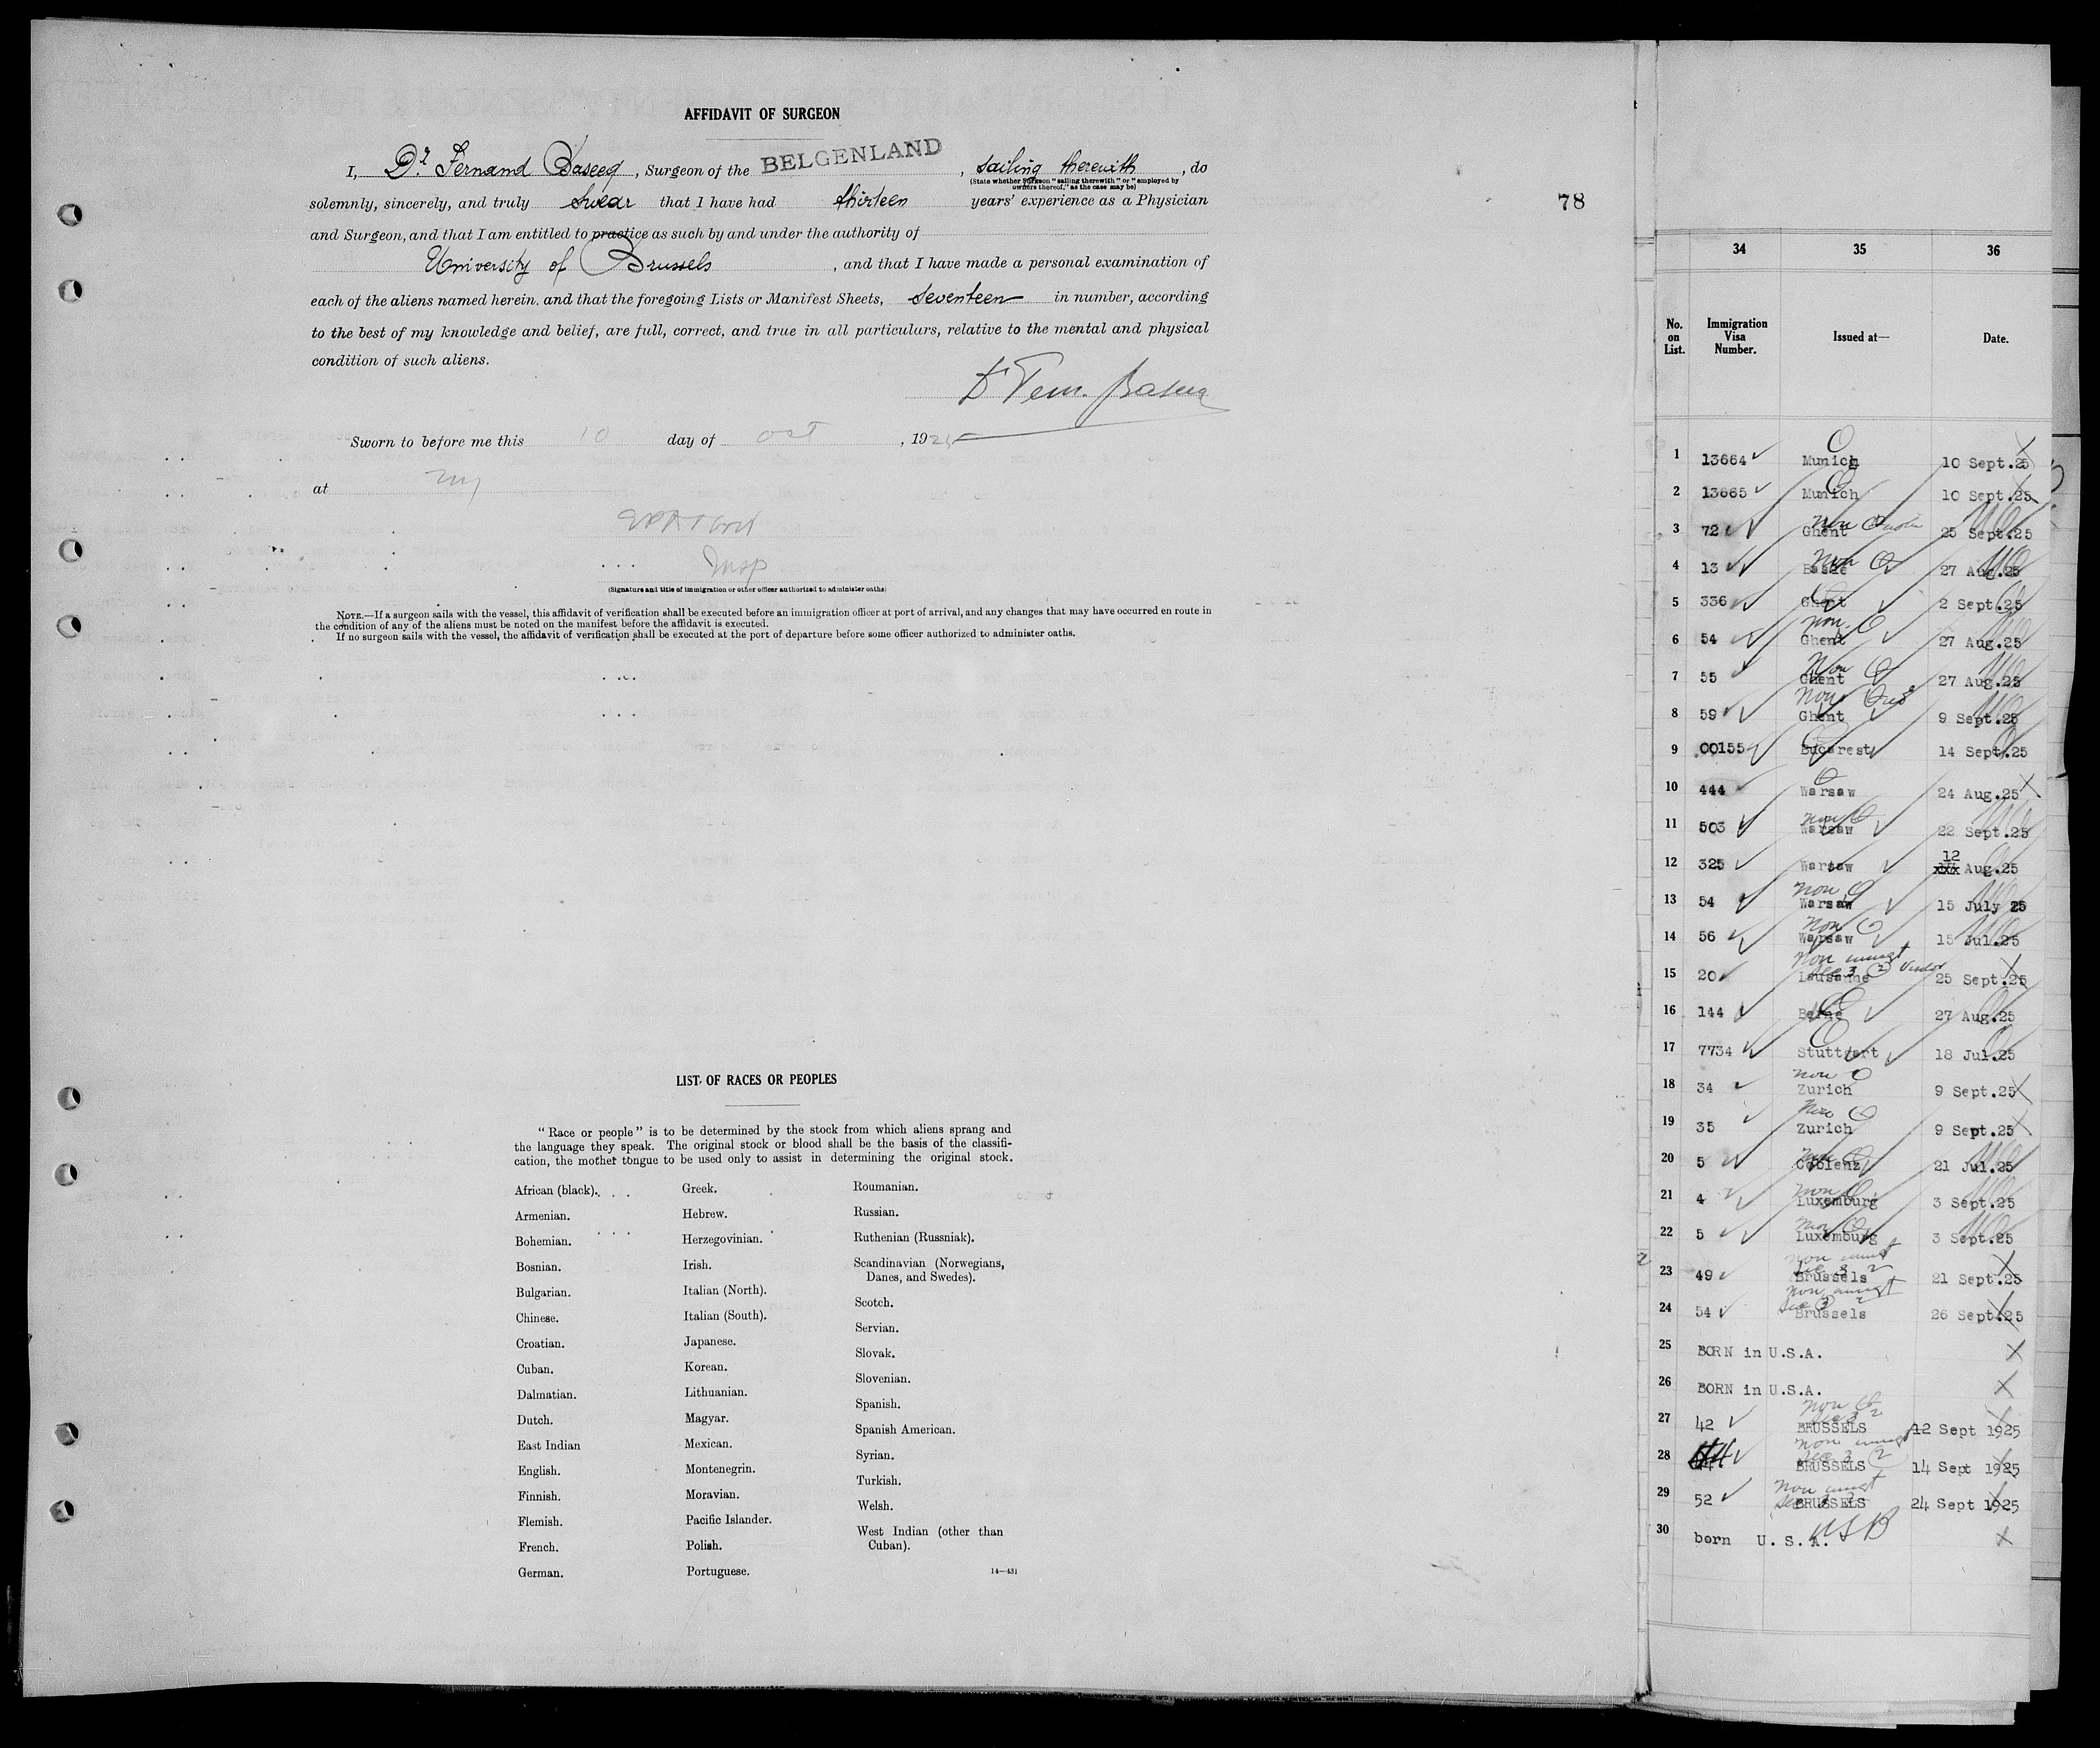 AFFIDAVIT OF SURGEON
I, Dr Fernand Baseeq, Surgeon of the BELGENLAND, sailing therewith, do
(State whether Surgeon "sailing therewith" or "employed by
owners thereof," as the case may be)
solemnly, sincerely, and truly swear that I have had thirteen years' experience as a Physician
and Surgeon, and that I am entitled to practice as such by and under the authority of
University of Brussels, and that I have made a personal examination of
each of the aliens named herein, and that the foregoing Lists or Manifest Sheets, seventeen in number, according
to the best of my knowledge and belief, are full, correct, and true in all particulars, relative to the mental and physical
condition of such aliens.
Sworn to before me this 10 day of Oct, 1925
at NY
Insp
(Signature and title of immigration or other officer authorized to administer oaths)
NOTE.—If a surgeon sails with the vessel, this affidavit of verification shall be executed before an immigration officer at port of arrival, and any changes that may have occurred en route in
the condition of any of the aliens must be noted on the manifest before the affidavit is executed.
If no surgeon sails with the vessel, the affidavit of verification shall be executed at the port of departure before some officer authorized to administer oaths.
LIST OF RACES OR PEOPLES
"Race or people" is to be determined by the stock from which aliens sprang and
the language they speak. The original stock or blood shall be the basis of the classifi-
cation, the mother tongue to be used only to assist in determining the original stock.
African (black).
Armenian.
Bohemian.
Bosnian.
Bulgarian.
Chinese.
Croatian.
Cuban.
Dalmatian.
Dutch.
East Indian
English.
Finnish.
Flemish.
French.
German.
Greek.
Hebrew.
Herzegovinian.
Irish.
Italian (North).
Italian (South).
Japanese.
Korean.
Lithuanian.
Magyar.
Mexican.
Montenegrin.
Moravian.
Pacific Islander.
Polish.
Portuguese.
Roumanian.
Russian.
Ruthenian (Russniak).
Scandinavian (Norwegians,
Danes, and Swedes).
Scotch.
Servian.
Slovak.
Slovenian.
Spanish.
Spanish American.
Syrian.
Turkish.
Welsh.
West Indian (other than
Cuban).
14—431
78
34 35 36
No. on List. Immigration Visa Number. Issued at— Date.
1 13664 Munich 10 Sept.25
2 13665 Munich 10 Sept.25
3 72 Ghent Non Quota 25 Sept.25
4 13 Basle Non Q 27 Aug.25
5 336 Ghent Q 2 Sept.25
6 54 Ghent Non Q 27 Aug.25
7 55 Ghent Non Q 27 Aug.25
8 59 Ghent Non 9 Sept.25
9 00155 Bucarest 14 Sept.25
10 444 Warsaw Q 24 Aug.25
11 503 Warsaw Non Q 22 Sept.25
12 325 Warsaw 12 xxx Aug.25
13 54 Warsaw Non Q 15 July 25
14 56 Warsaw Non Q 15 Jul.25
15 20 Lausanne Non immgt Sec 3 (2) Visitor 25 Sept.25
16 144 Berne Q 27 Aug.25
17 7734 Stuttgart Q 18 Jul.25
18 34 Zurich Non Q 9 Sept.25
19 35 Zurich Non Q 9 Sept.25
20 5 Coblenz Non Q 21 Jul.25
21 4 Luxemburg Non Q 3 Sept.25
22 5 Luxemburg Non Q 3 Sept.25
23 49 Brussels Non immgt Sec 3 2 21 Sept.25
24 54 Brussels Non immgt Sec 3 2 26 Sept.25
25 BORN in U.S.A.
26 BORN in U.S.A.
27 42 BRUSSELS Non Sec 3 2 12 Sept 1925
28 44 BRUSSELS Non immgt Sec 3 (2) 14 Sept 1925
29 52 BRUSSELS Non immgt Sec 3 2 24 Sept 1925
30 born U. S. A. USB